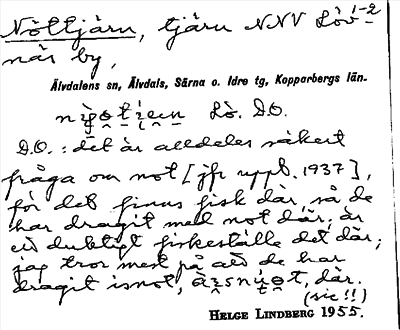 Nöttjärn, tjärn NNV Löv-1-2
näs by,
Älvdalens sn, Älvdals, Särna o. Idre tg, Kopparbergs län.
Lö. D.O.
D.O. : det är alldeles säkert
fråga om not [jfr uppt. 1937],
för det finns fisk där, så de
har dragit med not där; är
ett duktigt fiskeställe det där;
jag tror mest på att de har
dragit isnot, där.
(sic!!)
HELGE LINDBERG 1955.